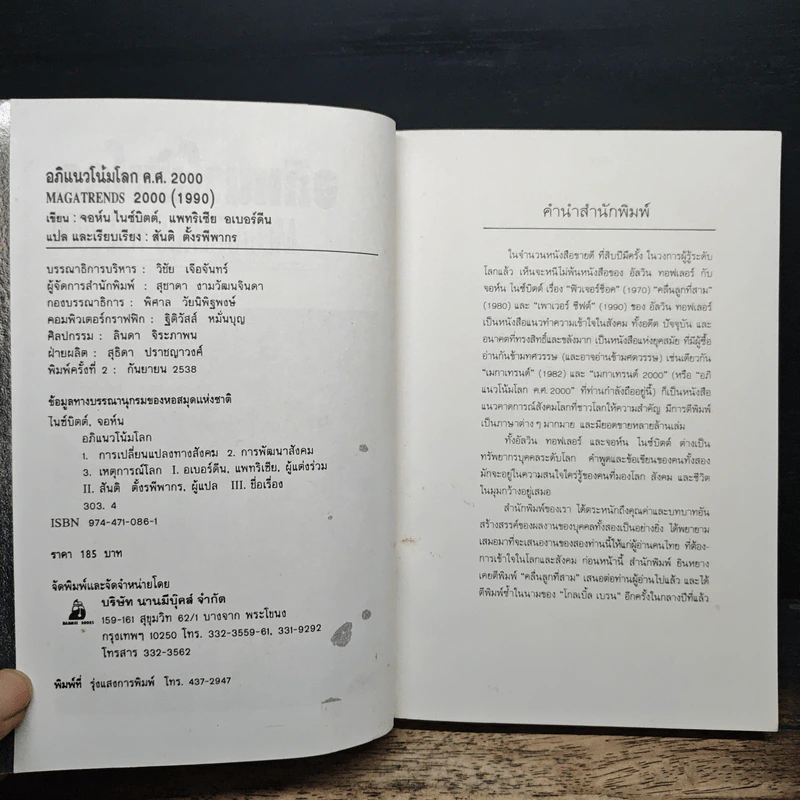 อภิแนวโน้มโลก ค.ศ. 2000
MAGATRENDS 2000 (1990)
เขียน : จอห์น ไนซ์บิตต์, แพทริเซีย อเบอร์ดีน
แปล และเรียบเรียง : สันติ ตั้งรพีพากร
บรรณาธิการบริหาร : วิชัย เจือจันทร์
ผู้จัดการสำนักพิมพ์ : สุชาดา งามวัฒนจินดา
กองบรรณาธิการ : พิศาล วัยนิพิฐพงษ์
คอมพิวเตอร์กราฟฟิก : ฐิติวัสส์ หมั่นบุญ
ศิลปกรรม : ลินดา จิระภาพน
ฝ่ายผลิต : สุธิดา ปราชญาวงศ์
พิมพ์ครั้งที่ 2 : กันยายน 2538
ข้อมูลทางบรรณานุกรมของหอสมุดแห่งชาติ
ไนซ์บิตต์, จอห์น
อภิแนวโน้มโลก
1. การเปลี่ยนแปลงทางสังคม 2. การพัฒนาสังคม
3. เหตุการณ์โลก I. อเบอร์ดีน, แพทริเซีย, ผู้แต่งร่วม
II. สันติ ตั้งรพีพากร, ผู้แปล III. ชื่อเรื่อง
303. 4
ISBN 974-471-086-1
ราคา 185 บาท
จัดพิมพ์และจัดจำหน่ายโดย
บริษัท นานมีบุ๊คส์ จำกัด
NANMEE BOOKS
159-161 สุขุมวิท 62/1 บางจาก พระโขนง
กรุงเทพฯ 10250 โทร. 332-3559-61, 331-9292
โทรสาร 332-3562
พิมพ์ที่ รุ่งแสงการพิมพ์ โทร. 437-2947
คำนำสำนักพิมพ์
ในจำนวนหนังสือขายดี ที่สิบปีมีครั้ง ในวงการผู้รู้ระดับ
โลกแล้ว เห็นจะหนีไม่พ้นหนังสือของ อัลวิน ทอฟเลอร์ กับ
จอห์น ไนซ์บิตต์ เรื่อง "ฟิวเจอร์ช็อค" (1970) "คลื่นลูกที่สาม"
(1980) และ "เพาเวอร์ ชีฟต์" (1990) ของ อัลวิน ทอฟเลอร์
เป็นหนังสือแนวทำความเข้าใจในสังคม ทั้งอดีต ปัจจุบัน และ
อนาคตที่ทรงสิทธิ์และขลังมาก เป็นหนังสือแห่งยุคสมัย ที่มีผู้ซื้อ
อ่านกันข้ามทศวรรษ (และอาจอ่านข้ามศตวรรษ) เช่นเดียวกัน
"เมกาเทรนด์" (1982) และ "เมกาเทรนด์ 2000" (หรือ "อภิ
แนวโน้มโลก ค.ศ. 2000" ที่ท่านกำลังถืออยู่นี้) ก็เป็นหนังสือ
แนวคาดการณ์สังคมโลกที่ชาวโลกให้ความสำคัญ มีการตีพิมพ์
เป็นภาษาต่าง ๆ มากมาย และมียอดขายหลายล้านเล่ม
ทั้งอัลวิน ทอฟเลอร์ และจอห์น ไนซ์บิตต์ ต่างเป็น
ทรัพยากรบุคคลระดับโลก คำพูดและข้อเขียนของคนทั้งสอง
มักจะอยู่ในความสนใจใคร่รู้ของคนที่มองโลก สังคม และชีวิต
ในมุมกว้างอยู่เสมอ
สำนักพิมพ์ของเรา ได้ตระหนักถึงคุณค่าและบทบาทอัน
สร้างสรรค์ของผลงานของบุคคลทั้งสองเป็นอย่างยิ่ง ได้พยายาม
เสมอมาที่จะเสนองานของสองท่านนี้ให้แก่ผู้อ่านคนไทย ที่ต้อง-
การเข้าใจในโลกและสังคม ก่อนหน้านี้ สำนักพิมพ์ ยินหยาง
เคยตีพิมพ์ "คลื่นลูกที่สาม" เสนอต่อท่านผู้อ่านไปแล้ว และได้
ตีพิมพ์ซ้ำในนามของ "โกลเบิ้ล เบรน" อีกครั้งในกลางปีที่แล้ว